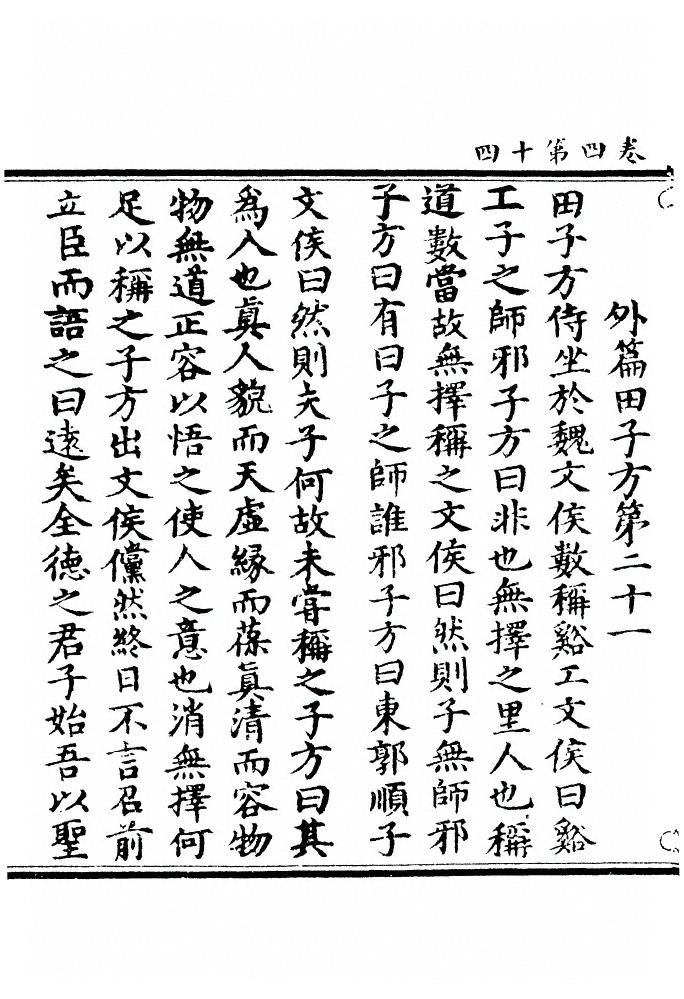 卷四第十四
外篇田子方第二十一
田子方侍坐於魏文侯數稱谿工文侯曰谿
工子之師邪子方曰非也無擇之里人也稱
道數當故無擇稱之文侯曰然則子無師邪
子方曰有曰子之師誰邪子方曰東郭順子
文侯曰然則夫子何故未甞稱之子方曰其
爲人也真人貌而天虛緣而葆真清而容物
物無道正容以悟之使人之意也消無擇何
足以稱之子方出文侯儻然終日不言召前
立臣而語之曰遠矣全德之君子始吾以聖